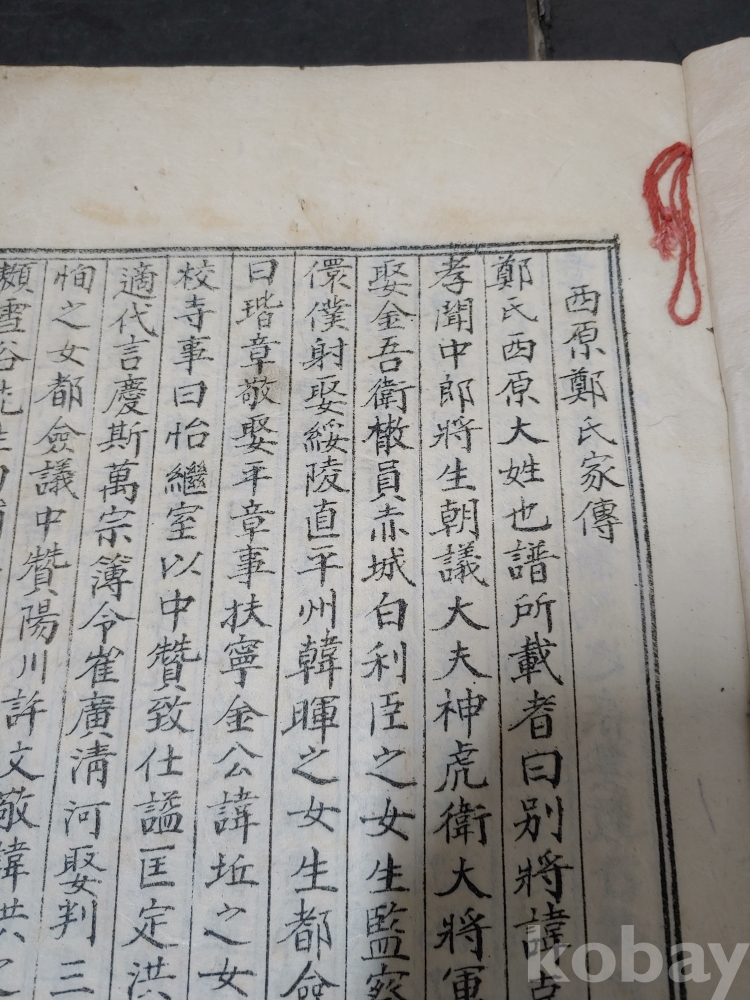 西原鄭氏家傳
鄭氏西原大姓也譜所載者曰别將諱
孝聞中郎將生朝議大夫神虎衛大將軍
娶金吾衛檄員赤城白利臣之女生監察
儇僕射娶綏陵直平州韓暉之女生都僉
曰瑎章敬娶平章事扶寧金公諱坵之女
校寺事曰怡繼室以中贊致仕謚匡定洪
適代言慶斯萬宗簿令崔廣清河娶判三
恂之女都僉議中贊陽川許文敬諱珙之
類雪谷先生曰
kobay